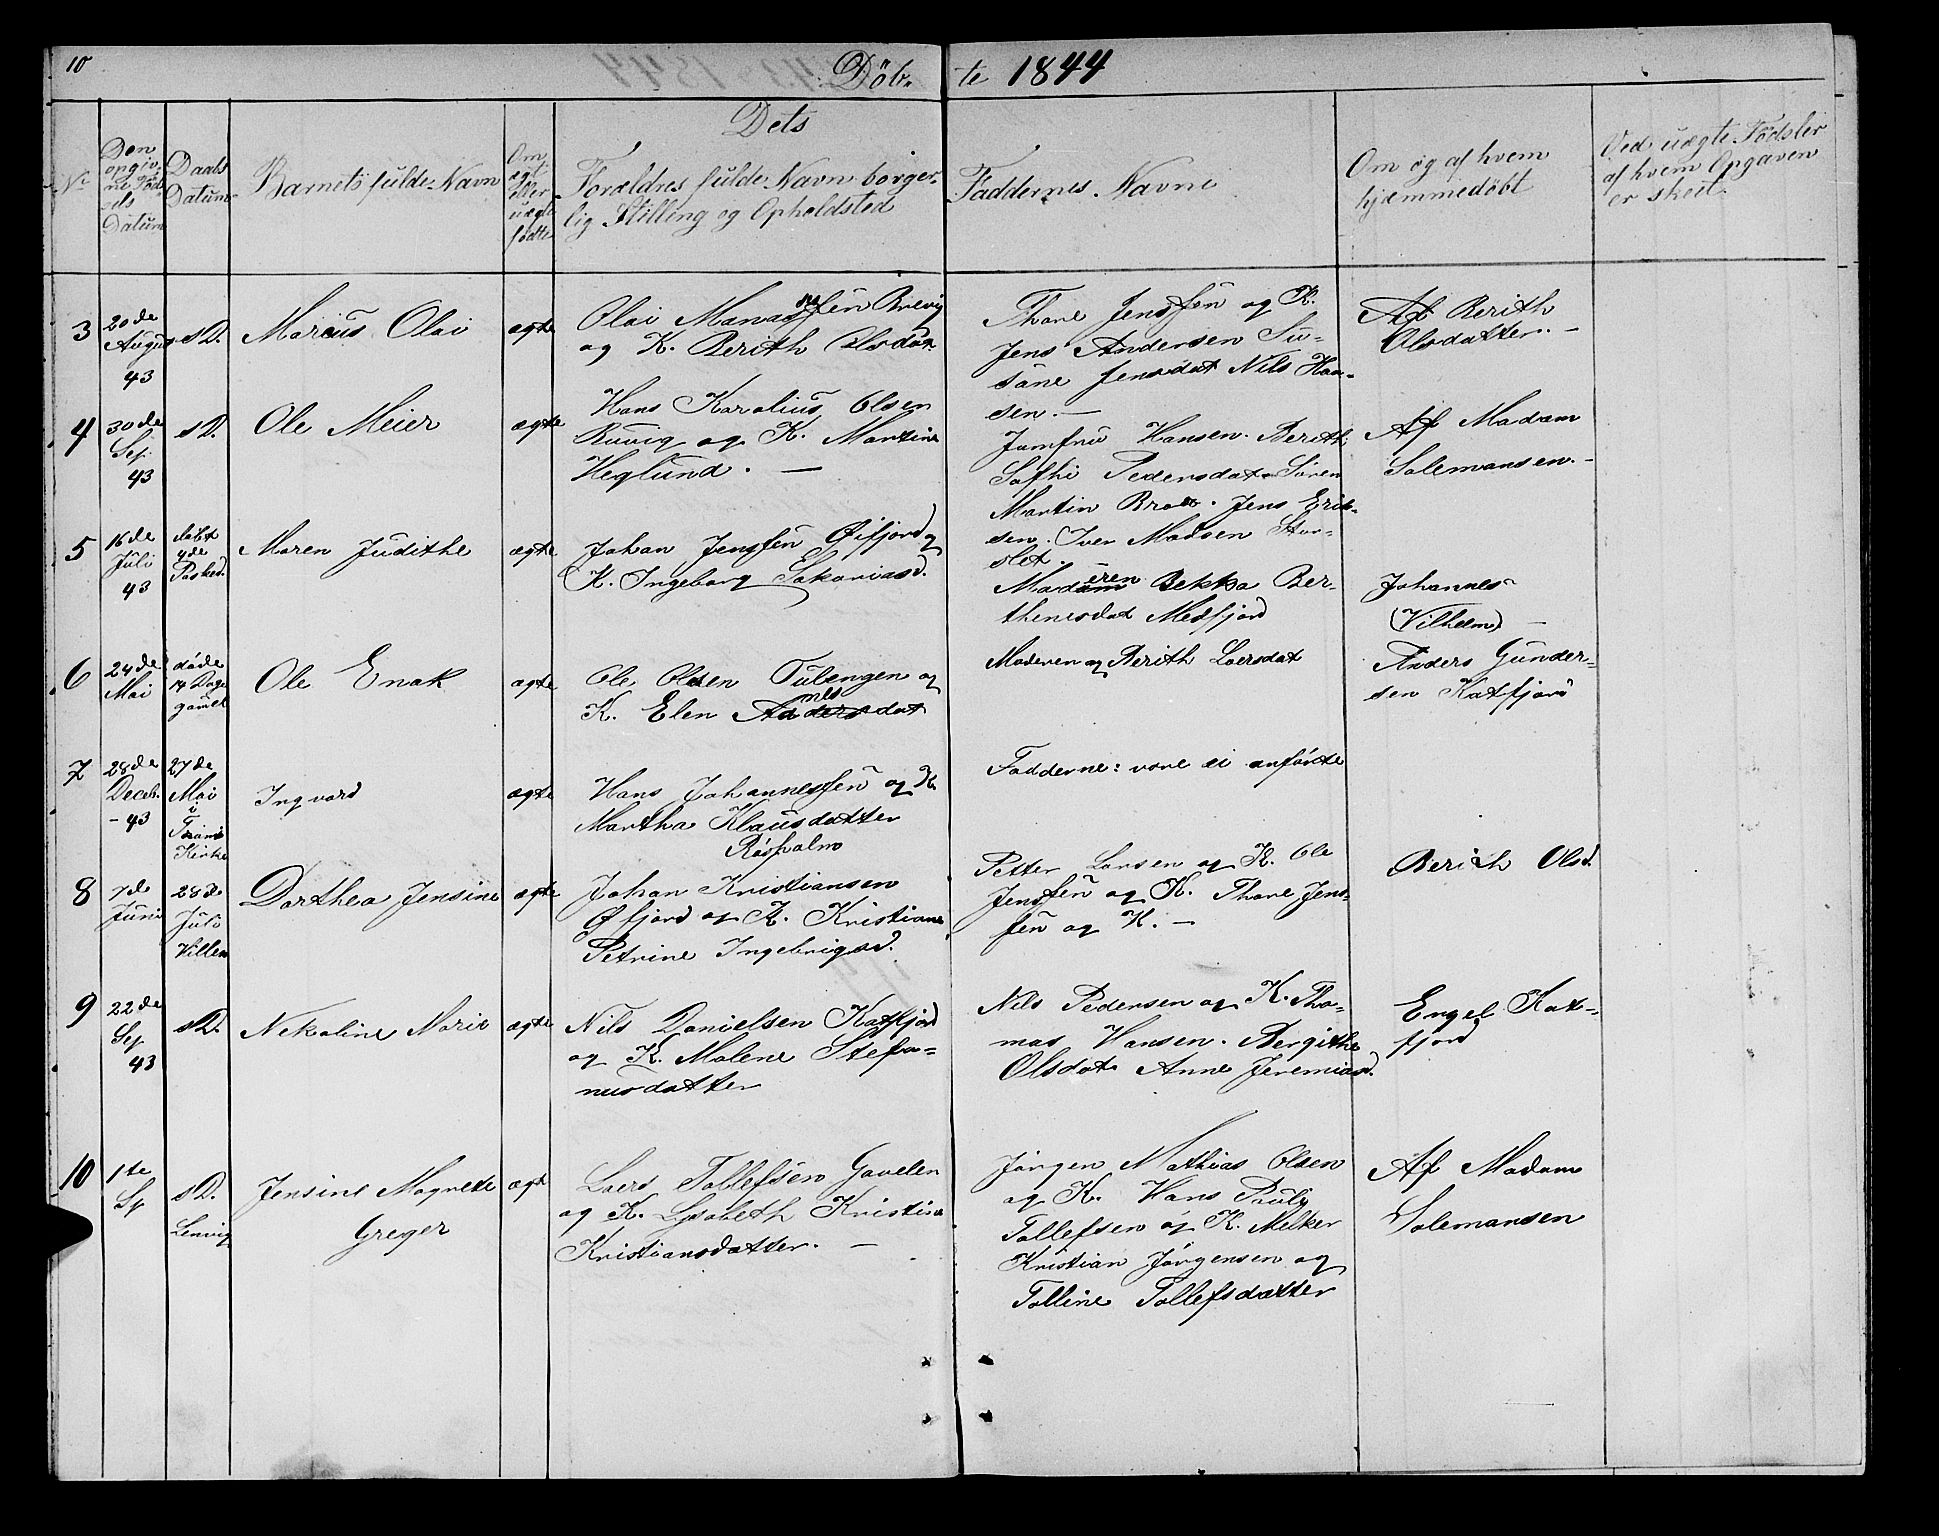 10
Döb-
te 1844
Dets
Nr
Den
opgiv
ne Föd
sels
Datum
Daabs
Datum
Barnets fulde Navn
Om
ægt
eller
uægte
fødte
Forældres fulde Navn borger-
lig Stilling og Opholdsted
Faddernes Navne
Om og af hvem
hjemmedöbt
Ved uægte Födsler
af hvem Opgaven
er skeet.
3
20de
August
43
s D.
Marius Olai
ægte
Olai Manassesen Brevig
og K. Berith Olsdat
Thore Jenssen og K.
Jens Andersen Su-
sane Jensdat Nils Han-
sen. —
Af Berith
Olsdatter. —
4
30de
Sep.
43
s D.
Ole Meier
ægte
Hans Karolius Olsen
Buvig og K. Martine
Heglund. —
Jomfru Hansen. Berith
Sofhi Pedersdat. Sören
Martin Brox. Jens Erik-
sen. Iver Madsen Stor-
slet.
Af Madam
Salemansen. —
5
16de
Juli
43
döbt
4de
Pasked.
Maren Judithe
ægte
Johan Jenssen Öifjord og
K. Ingeborg Sakariasd.
Moderen Bekka Ber-
thenisdat Medfjord
Johannes
(Vilhelm) —
6
24de
Mai
döde
14 Dage
gamel
Ole Enok
ægte
Ole Olsen Tulengen og
K. Elen Andersdat
Moderen og Berith Laersdat
Anders Gunder-
sen Katfjord
7
28de
Deceb.
- 43
27de
Mai
i
Tromsö
Kirke
Ingvard
ægte
Hans Johannessen og K.
Martha Klausdatter
Rösholm
Fadderne: vare ei anförte
8
7de
Juni
28de
Juli
Hillesø
Dorthea Jensine
ægte
Johan Kristiansen
Öfjord og K. Kristiane
Petrine Ingebrigsd.
Petter Larsen og K. Ole
Jenssen og K. Thore Jens-
sen og K. —
Berith Olsd.
9
22de
Sep
43
s D.
Nekoline Marie
ægte
Nils Danielsen Katfjord
og K. Malene Stefa-
nusdatter
Nils Pedersen og K. Tho-
mas Hansen. Bergithe
Olsdat. Anne Jeremiasd.
Engel Kat-
fjord
10
1te
Sp
s D.
Lenvig
Jensine Magrete
Greger
ægt
Laers Tollefsen Gavelen
og K. Lisabeth Kristine
Kristiansdatter. —
Jörgen Mathias Olsen
og K. Hans Pauly
Tollefsen og K. Melker
Kristian Jörgensen og
Tolline Tollefsdatter
Af Madam
Salemansen